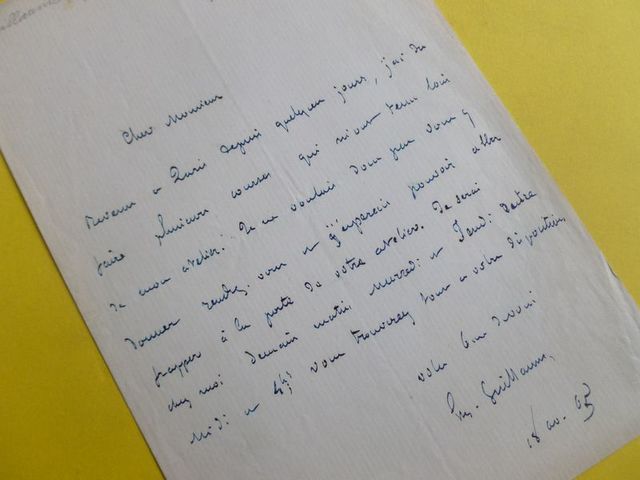 Cher Monsieur
Revenu à Paris depuis quelques jours, j'ai dû
faire plusieurs courses qui m'ont tenu loin
de mon atelier. Je ne voulais donc pas vous y
donner rendez-vous et j'espérais pouvoir aller
frapper à la porte de votre atelier. Je serai
chez moi demain matin mercredi et Jeudi
midi et vous trouverez tout à votre disposition.
votre bien dévoué
Guillaume,
18